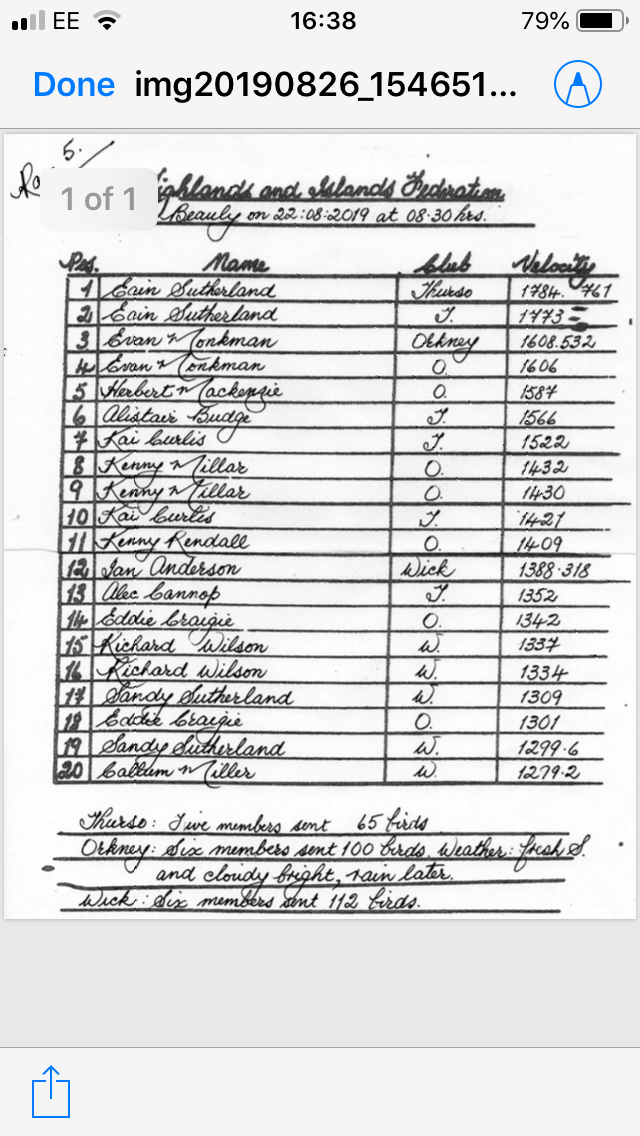 EE 16:38 79%
Done img20190826_154651...
5.
1 of 1
Highlands and Islands Federation
Beauly on 22:08:2019 at 08·30 hrs.
Pos. Name Club Velocity
1 Eain Sutherland Thurso 1784. 761
2 Eain Sutherland T. 1773
3 Evan Monkman Orkney 1608.532
4 Evan Monkman O. 1606
5 Herbert Mackenzie O. 1587
6 Alistair Budge T. 1566
7 Kai Curtis T. 1522
8 Kenny Millar O. 1432
9 Kenny Millar O. 1430
10 Kai Curtis T. 1421
11 Kenny Rendall O. 1409
12 Ian Anderson Wick 1388·318
13 Alec Cannop T. 1352
14 Eddie Craigie O. 1342
15 Richard Wilson W. 1337
16 Richard Wilson W. 1334
17 Sandy Sutherland W. 1309
18 Eddie Craigie O. 1301
19 Sandy Sutherland W. 1299·6
20 Callum Miller W. 1279·2
Thurso: Five members sent 65 birds
Orkney: Six members sent 100 birds. Weather: fresh S.
and cloudy bright, rain later.
Wick: Six members sent 112 birds.